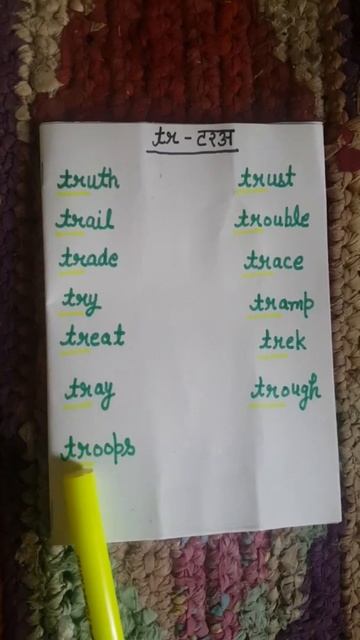 tr - टरअ
truth
trail
trade
try
treat
tray
troops
trust
trouble
trace
tramp
trek
trough